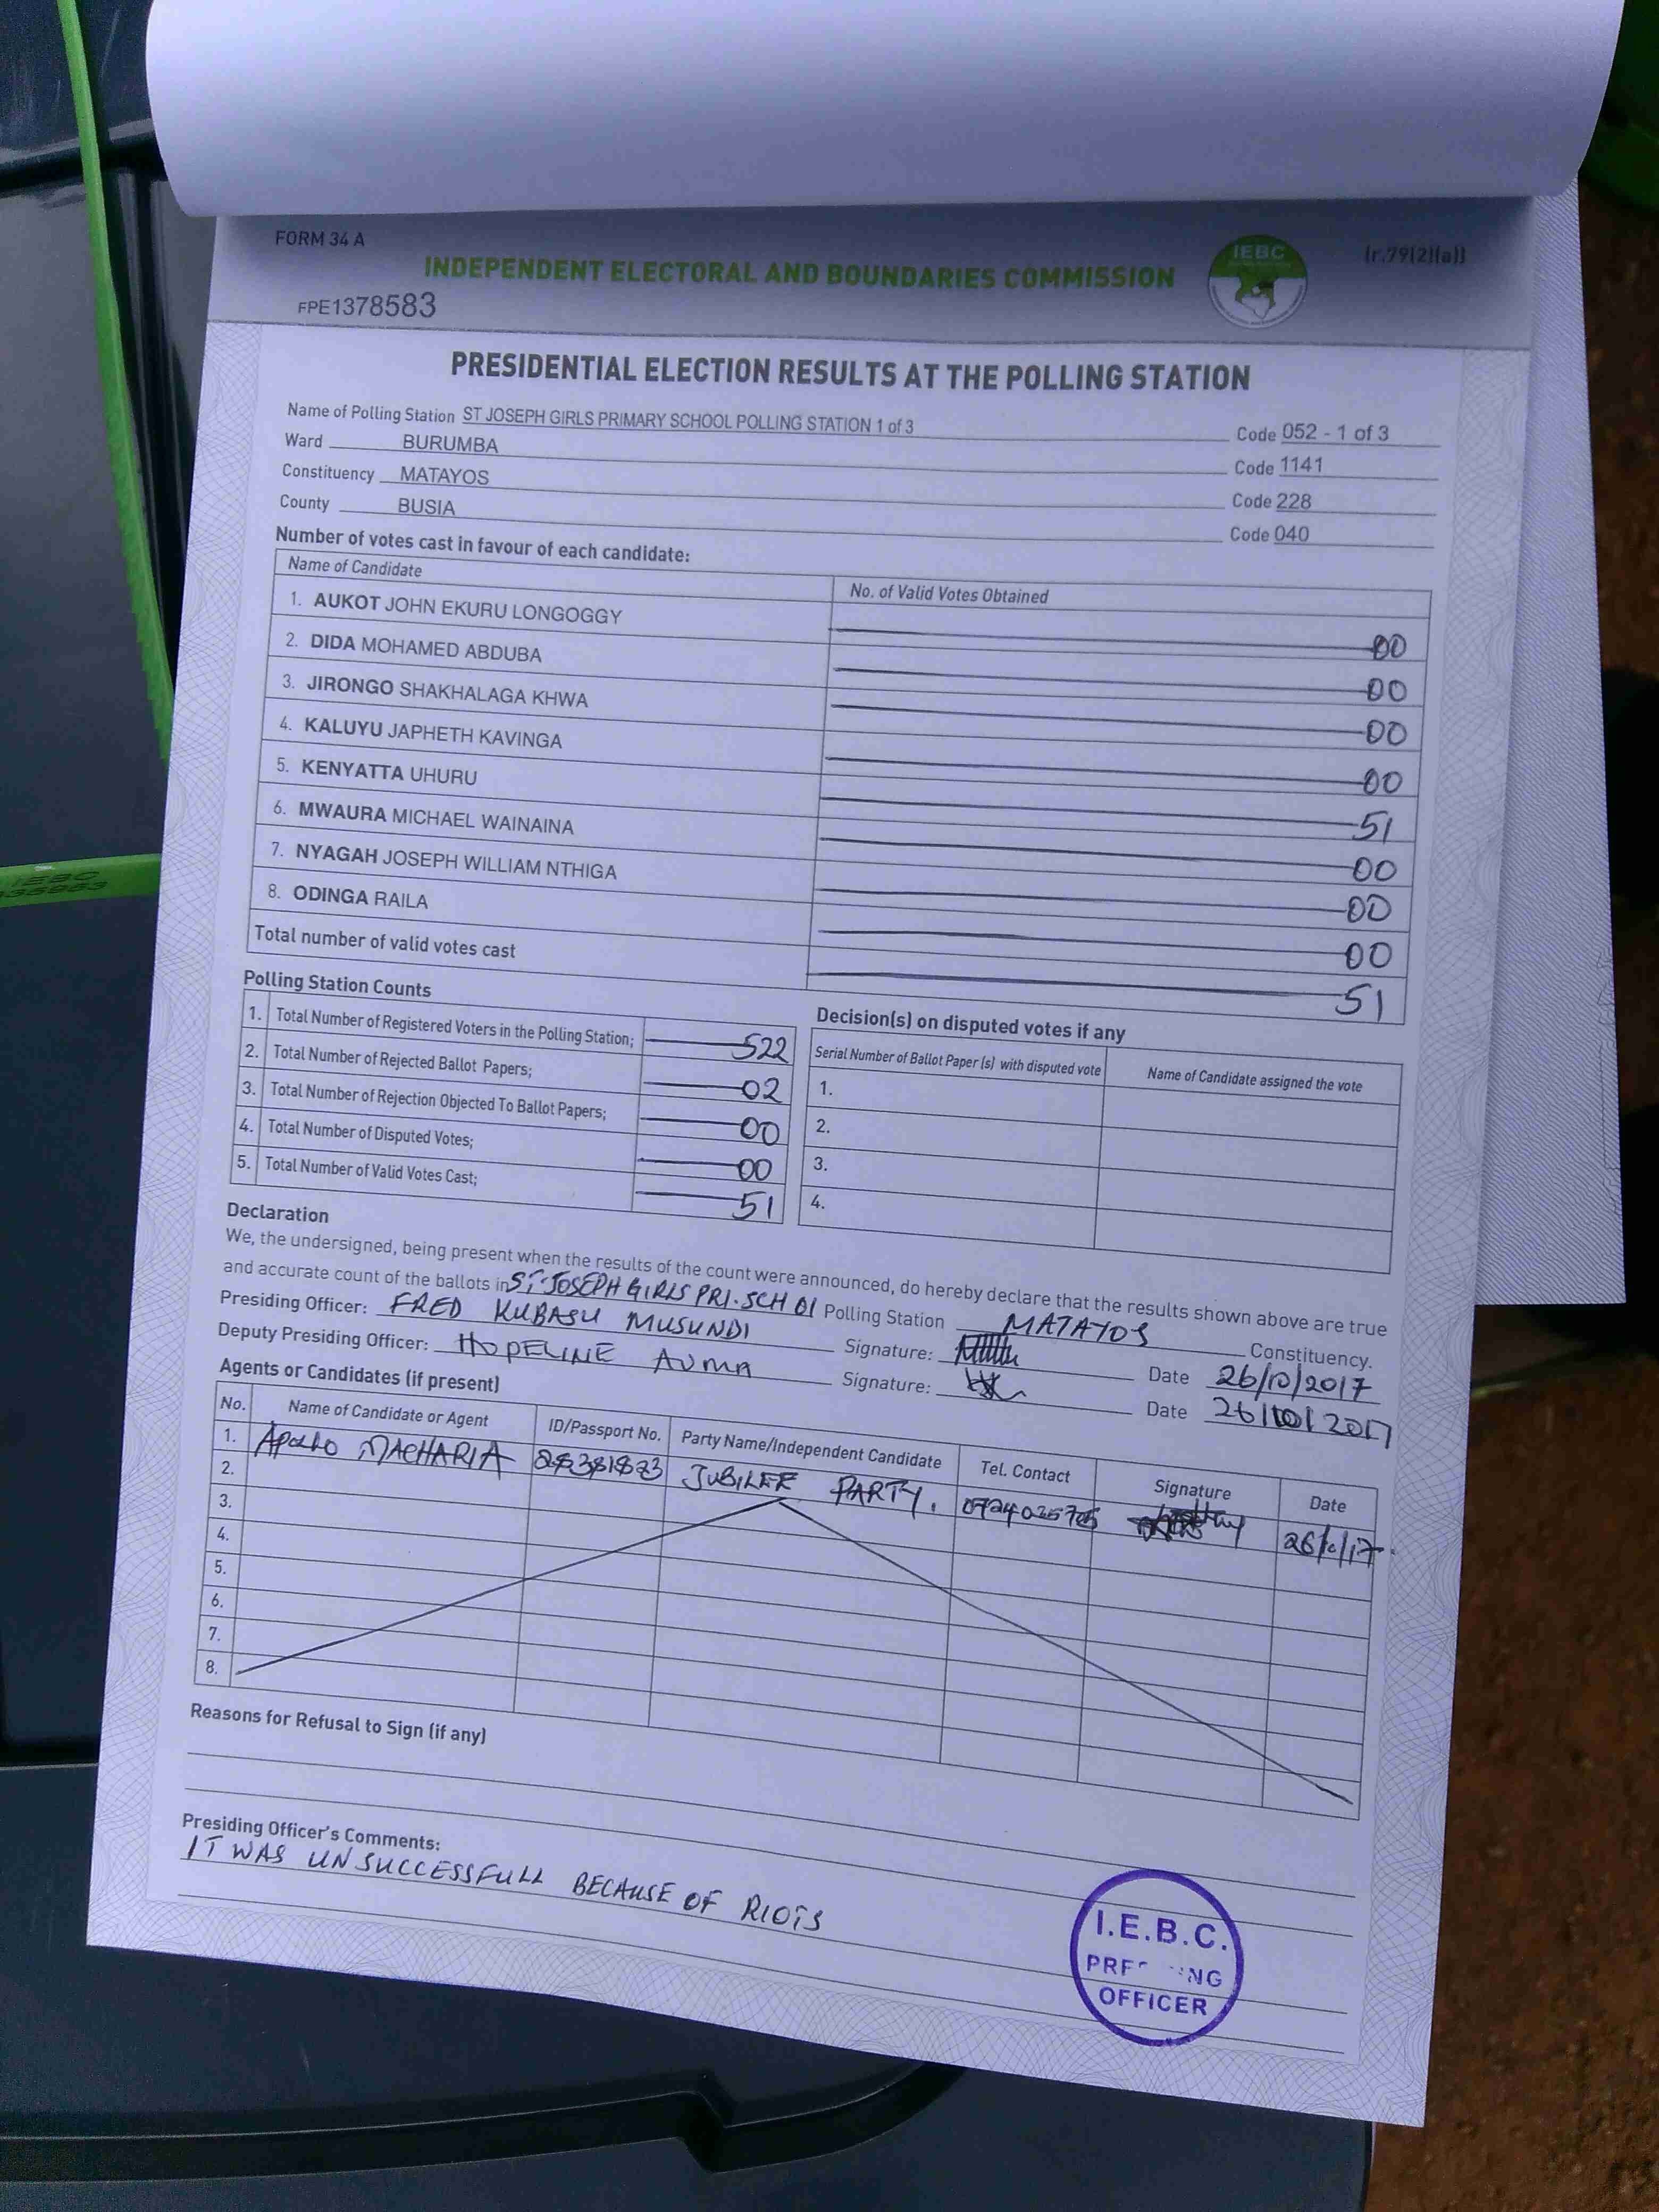 FORM 34 A
(r.79(2)(a))
INDEPENDENT ELECTORAL AND BOUNDARIES COMMISSION
IEBC
FPE1378583
PRESIDENTIAL ELECTION RESULTS AT THE POLLING STATION
Name of Polling Station ST JOSEPH GIRLS PRIMARY SCHOOL POLLING STATION 1 of 3 Code 052 - 1 of 3
Ward BURUMBA Code 1141
Constituency MATAYOS Code 228
County BUSIA Code 040
Number of votes cast in favour of each candidate:
Name of Candidate No. of Valid Votes Obtained
1. AUKOT JOHN EKURU LONGOGGY 00
2. DIDA MOHAMED ABDUBA 00
3. JIRONGO SHAKHALAGA KHWA 00
4. KALUYU JAPHETH KAVINGA 00
5. KENYATTA UHURU 51
6. MWAURA MICHAEL WAINAINA 00
7. NYAGAH JOSEPH WILLIAM NTHIGA 00
8. ODINGA RAILA 00
Total number of valid votes cast 51
Polling Station Counts
1. Total Number of Registered Voters in the Polling Station; 522
2. Total Number of Rejected Ballot Papers; 02
3. Total Number of Rejection Objected To Ballot Papers; 00
4. Total Number of Disputed Votes; 00
5. Total Number of Valid Votes Cast; 51
Decision(s) on disputed votes if any
Serial Number of Ballot Paper (s) with disputed vote Name of Candidate assigned the vote
1.
2.
3.
4.
Declaration
We, the undersigned, being present when the results of the count were announced, do hereby declare that the results shown above are true
and accurate count of the ballots in ST. JOSEPH GIRLS PRI. SCH 01 Polling Station MATAYOS Constituency.
Presiding Officer: FRED KUBASU MUSUNDI Signature: Date 26/10/2017
Deputy Presiding Officer: HOPELINE AUMA Signature: Date 26/10/2017
Agents or Candidates (if present)
No. Name of Candidate or Agent ID/Passport No. Party Name/Independent Candidate Tel. Contact Signature Date
1. APOLLO MACHARIA JUBILEE PARTY. 26/10/17
2.
3.
4.
5.
6.
7.
8.
Reasons for Refusal to Sign (if any)
Presiding Officer's Comments:
IT WAS UNSUCCESSFULL BECAUSE OF RIOTS
I.E.B.C.
OFFICER